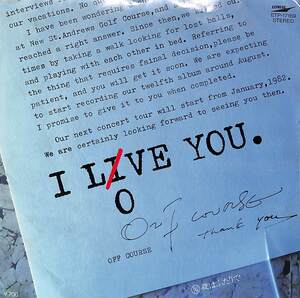 interviews
our vacations. No o
I have been wondering
at New St. Andrews Golf Course, and
reached a right answer. Since then, we
times by taking a walk looking for lost balls,
and playing with each other in bed. Referring to
the thing that requires fainal decision, please be
patient, and you will get it soon. We are expecting
to start recording our twelfth album around August.
I promise to give it to you when completed.
Our next concert tour will start from January, 1982.
We are certainly looking forward to seeing you then.
I LIVE YOU.
O
OFF COURSE
Thank you
OFF COURSE
STEREO
¥700
夜はふたりで